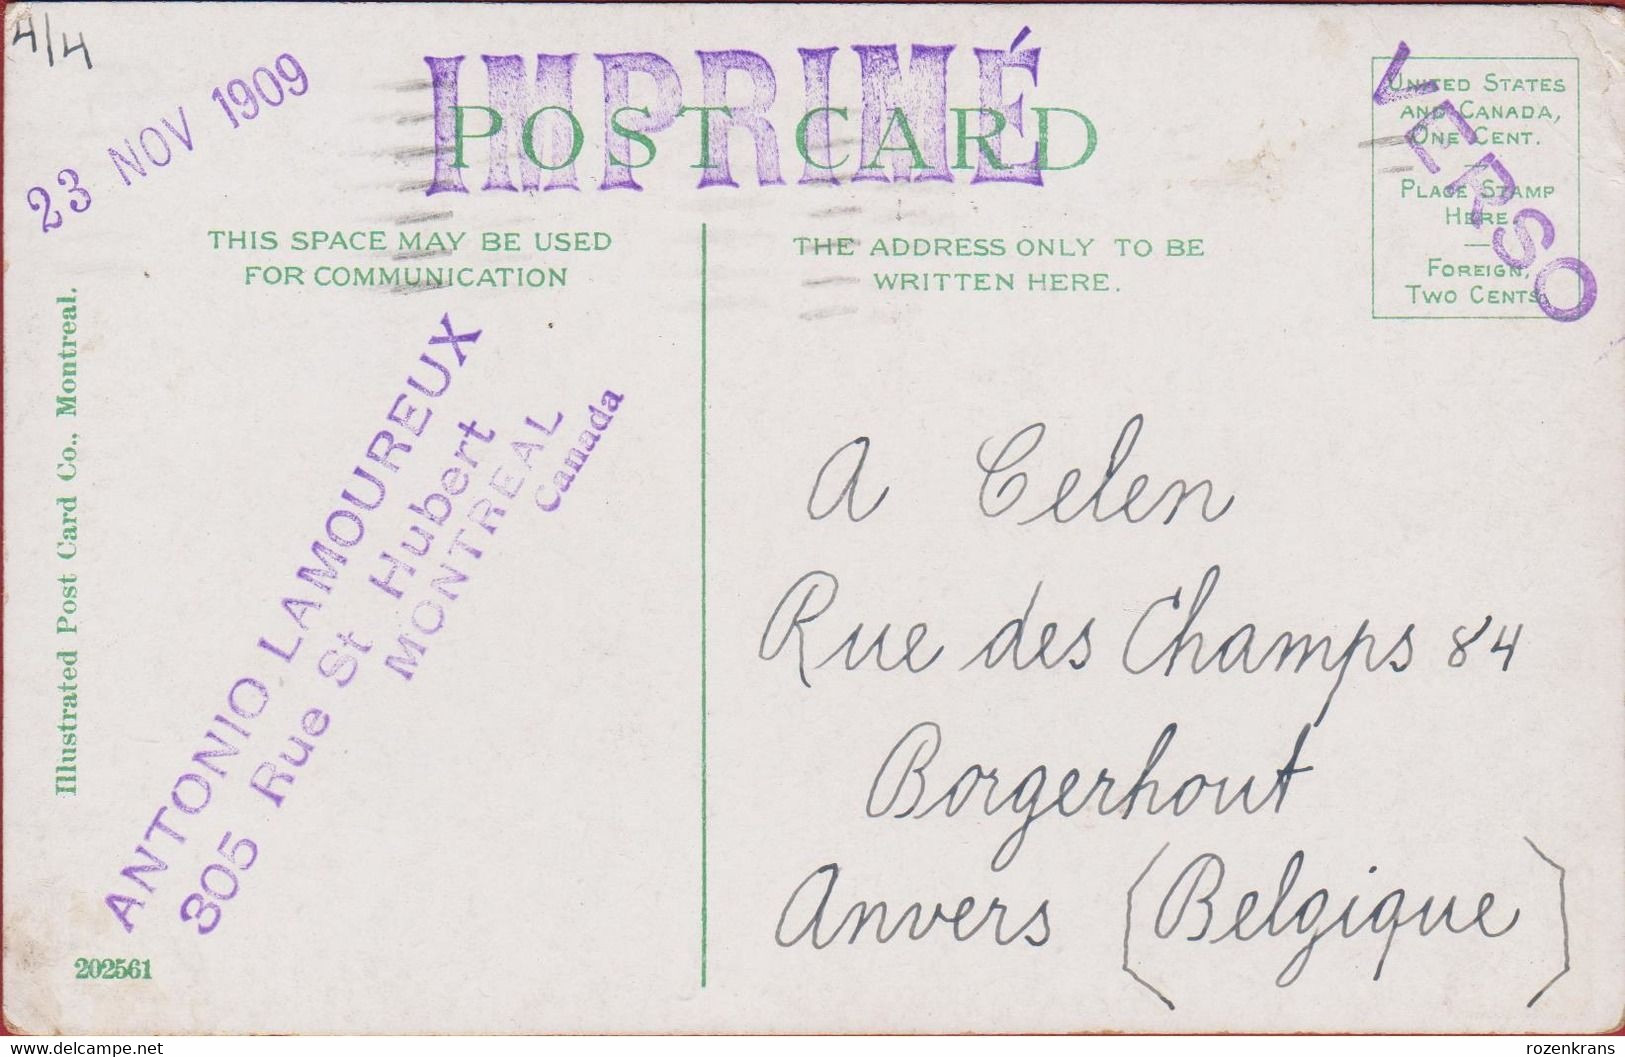 4/4
23 NOV 1909
IMPRIMÉ
POST CARD
VERSO
UNITED STATES
AND CANADA,
ONE CENT.
—
PLACE STAMP
HERE.
—
FOREIGN,
TWO CENTS.
THIS SPACE MAY BE USED
FOR COMMUNICATION
THE ADDRESS ONLY TO BE
WRITTEN HERE.
Illustrated Post Card Co., Montreal.
ANTONIO LAMOUREUX
305 Rue St Hubert
MONTREAL
Canada
A Celen
Rue des Champs 84
Borgerhout
Anvers (Belgique)
202561
delcampe.net
rozenkrans